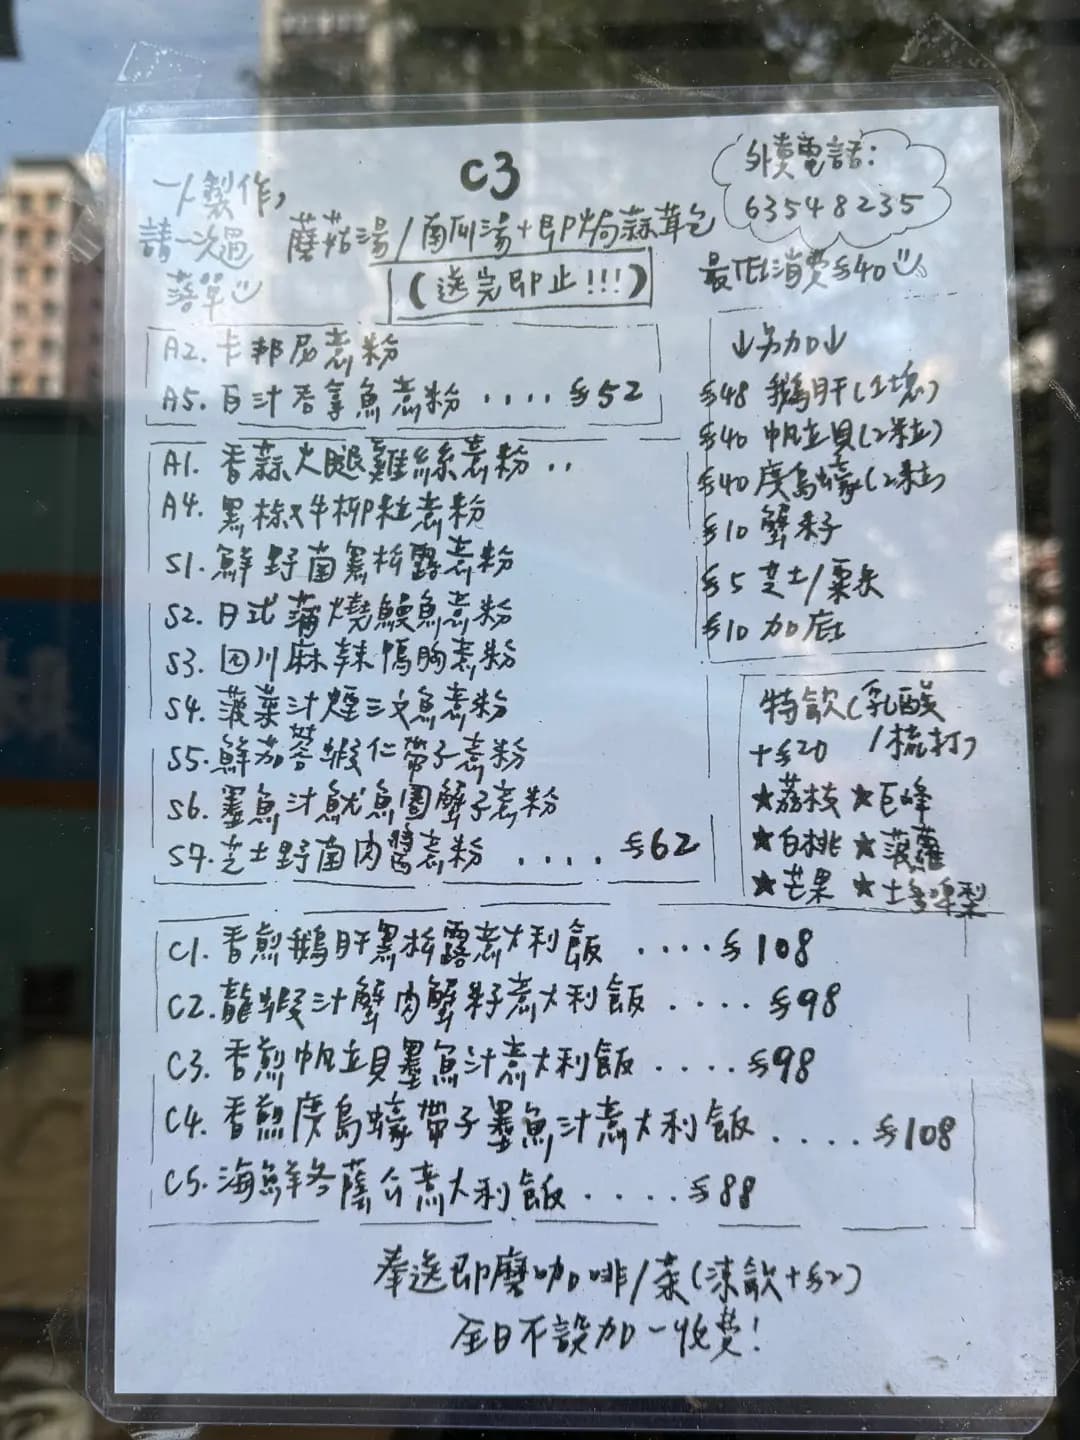 C3
一人製作,
請一次過
落單
蘑菇湯/南瓜湯+即焗蒜茸包
(送完即止!!!)
外賣電話:
63548235
最低消費$40
A2. 卡邦尼意粉
A5. 白汁吞拿魚意粉 .... $52
A1. 香蒜火腿雞絲意粉 ..
A4. 黑椒牛柳粒意粉
S1. 鮮野菌黑松露意粉
S2. 日式蒲燒鰻魚意粉
S3. 四川麻辣鴨胸意粉
S4. 菠菜汁煙三文魚意粉
S5. 鮮茄蓉蝦仁帶子意粉
S6. 墨魚汁魷魚圈蟹子意粉
S7. 芝士野菌肉醬意粉 .... $62
↓另加↓
$48 鵝肝(1塊)
$40 帆立貝(2粒)
$40 廣島蠔(2粒)
$10 蟹籽
$5 芝士/粟米
$10 加底
特飲(乳酸
+$20 /梳打)
★荔枝 ★巨峰
★白桃 ★菠蘿
★芒果 ★士多啤梨
C1. 香煎鵝肝黑松露意大利飯 .... $108
C2. 龍蝦汁蟹肉蟹籽意大利飯 .... $98
C3. 香煎帆立貝墨魚汁意大利飯 .... $98
C4. 香煎廣島蠔帶子墨魚汁意大利飯 .... $108
C5. 海鮮冬蔭公意大利飯 .... $88
奉送即磨咖啡/茶(凍飲+$2)
全日不設加一收費!